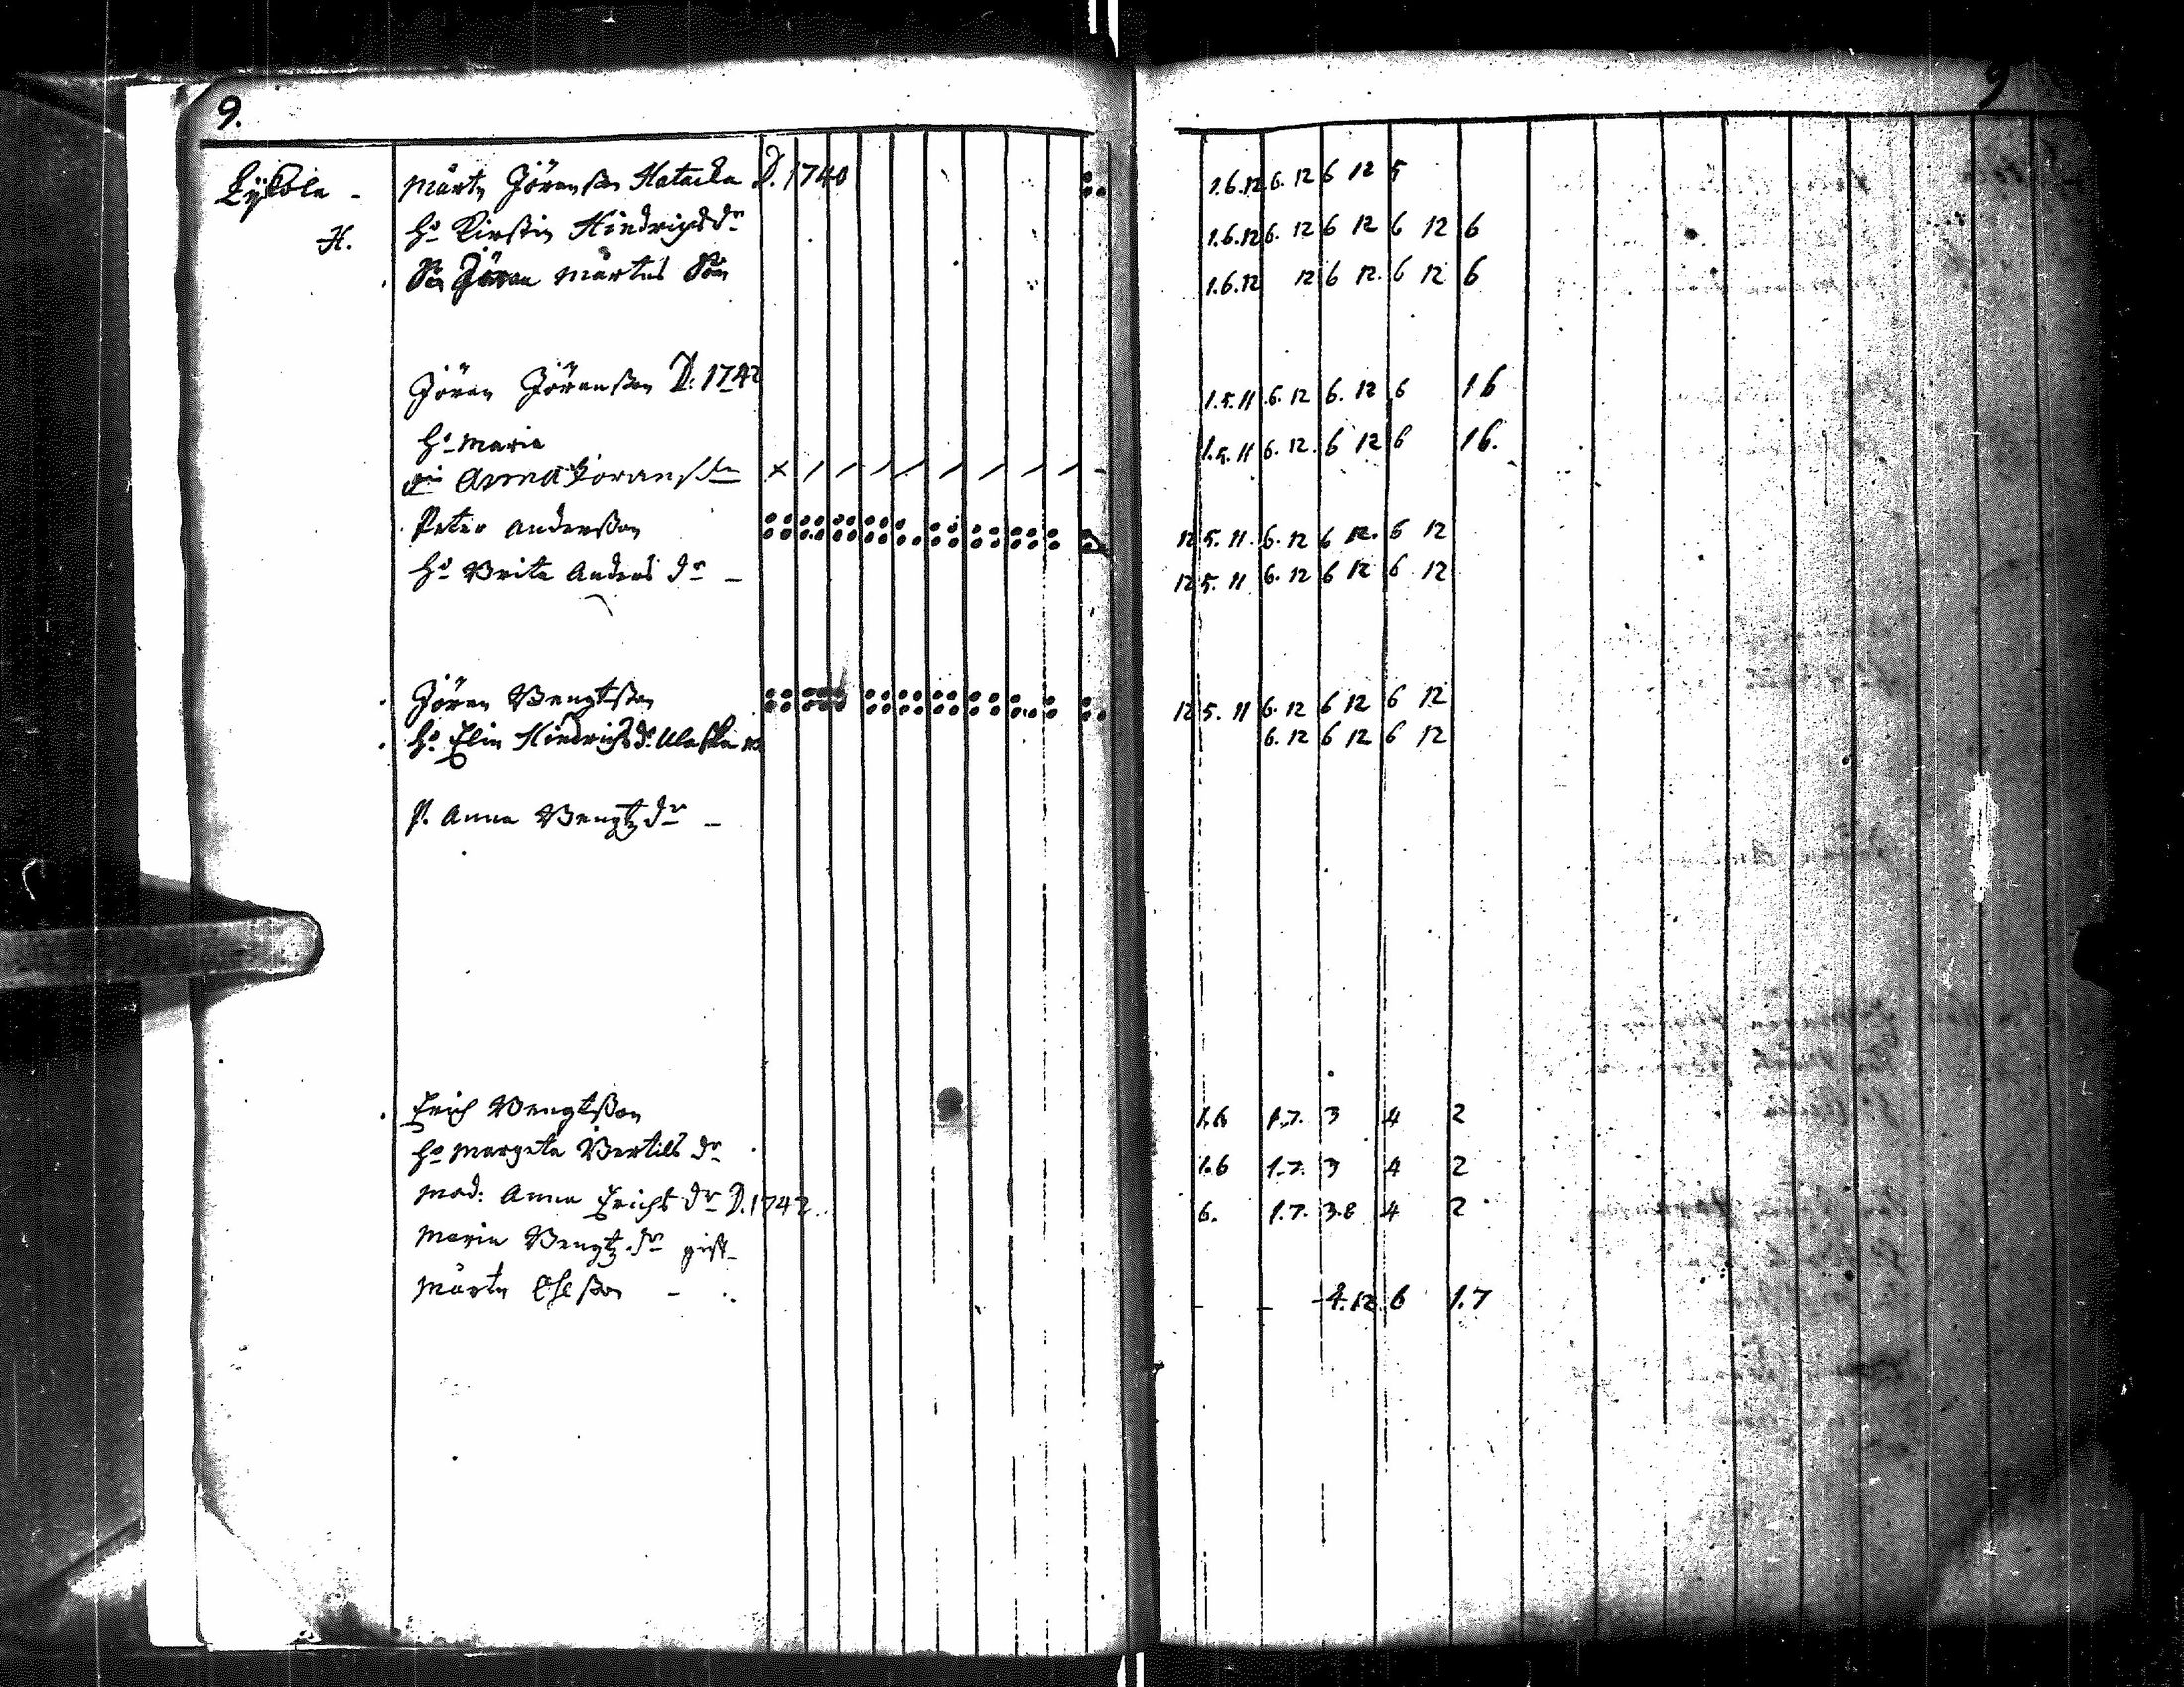 9. 9
Lyköla - Mårtn Jöransson Hatacka D. 1740 1.6.12 6. 12 6 12 5
H. Ho Kirstin Hindrichsdr 1.6.12 6. 12 6 12 6 12 6
Jöran Mårtns Son 1.6.12 12 6 12. 6 12 6
Jöran Jöransson D. 1742 1.5.11 6. 12 6. 12 6 1 6
Ho Maria 1.5.11 6. 12. 6 12 6 1 6.
Anna Joransdr
Peter Andersson 12 5. 11. 6. 12 6 12. 6 12
Ho Brita Anders dr - 12 5. 11 6. 12 6 12 6 12
Jören Bengtsson 12 5. 11 6. 12 6 12 6 12
Ho Elin Hindrichsdr 6. 12 6 12 6 12
P. Anna Bengtz dr -
Erich Bengtsson 1.6 1.7. 3 4 2
Ho Margeta Bertils dr 1.6 1.7. 3 4 2
Mod: Anna Erichs dr D. 1742 6. 1.7. 3.8 4 2
Maria Bengtz dr gift
Mårtn - - - - 4.12. 6 1.7